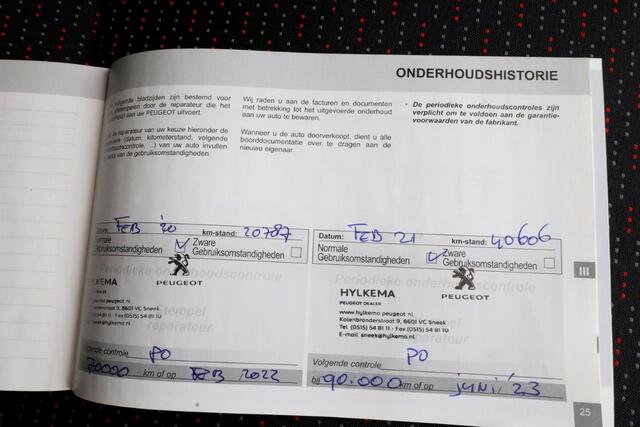 ONDERHOUDSHISTORIE
volgende bladzijden zijn bestemd voor
afstempelen door de reparateur die het
aan uw PEUGEOT uitvoert.
de reparateur van uw keuze hieronder de
(datum, kilometerstand, volgende
...) van uw auto invullen
van de gebruiksomstandigheden.
Wij raden u aan de facturen en documenten
met betrekking tot het uitgevoerde onderhoud
aan uw auto te bewaren.
Wanneer u de auto doorverkoopt, dient u alle
boorddocumentatie over te dragen aan de
nieuwe eigenaar.
• De periodieke onderhoudscontroles zijn
verplicht om te voldoen aan de garantie-
voorwaarden van de fabrikant.
FEB '20 km-stand: 20787
Normale Zware
Gebruiksomstandigheden Gebruiksomstandigheden
Periodieke onderhoudscontrole
PEUGEOT
HYLKEMA
PEUGEOT DEALER
www.hylkema.peugeot.nl
9, 8601 VC Sneek
Tel (0515) 54 81 11 - Fax (0515) 54 81 10
hylkema.nl
Stempel
reparateur
Volgende controle PO
70000 km of op FEB 2022
Datum: FEB 21 km-stand: 40606
Normale Zware
Gebruiksomstandigheden Gebruiksomstandigheden
Periodieke onderhoudscontrole
PEUGEOT
HYLKEMA
PEUGEOT DEALER
www.hylkema.peugeot.nl
9, 8601 VC Sneek
Tel (0515) 54 81 11 - Fax (0515) 54 81 10
E-mail sneek@hylkema.nl
Stempel
reparateur
Volgende controle PO
bij 90.000 km of op juni '23
III
25